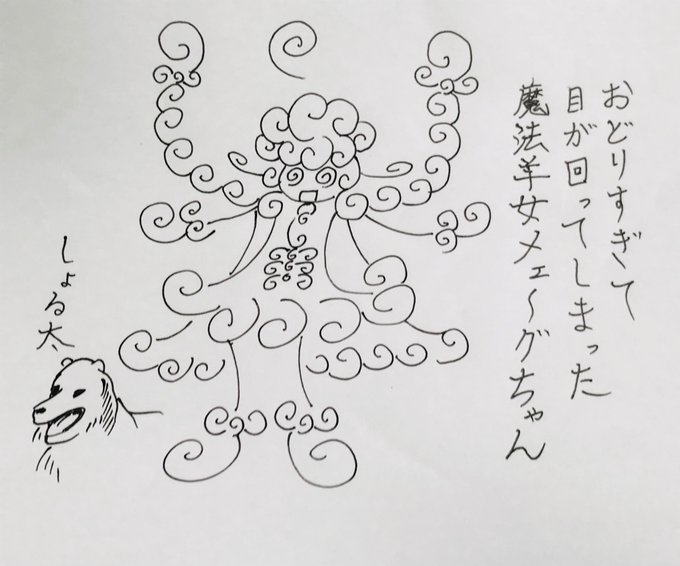 おどりすぎて
目が回ってしまった
魔法羊女メェ～グちゃん
しょる太